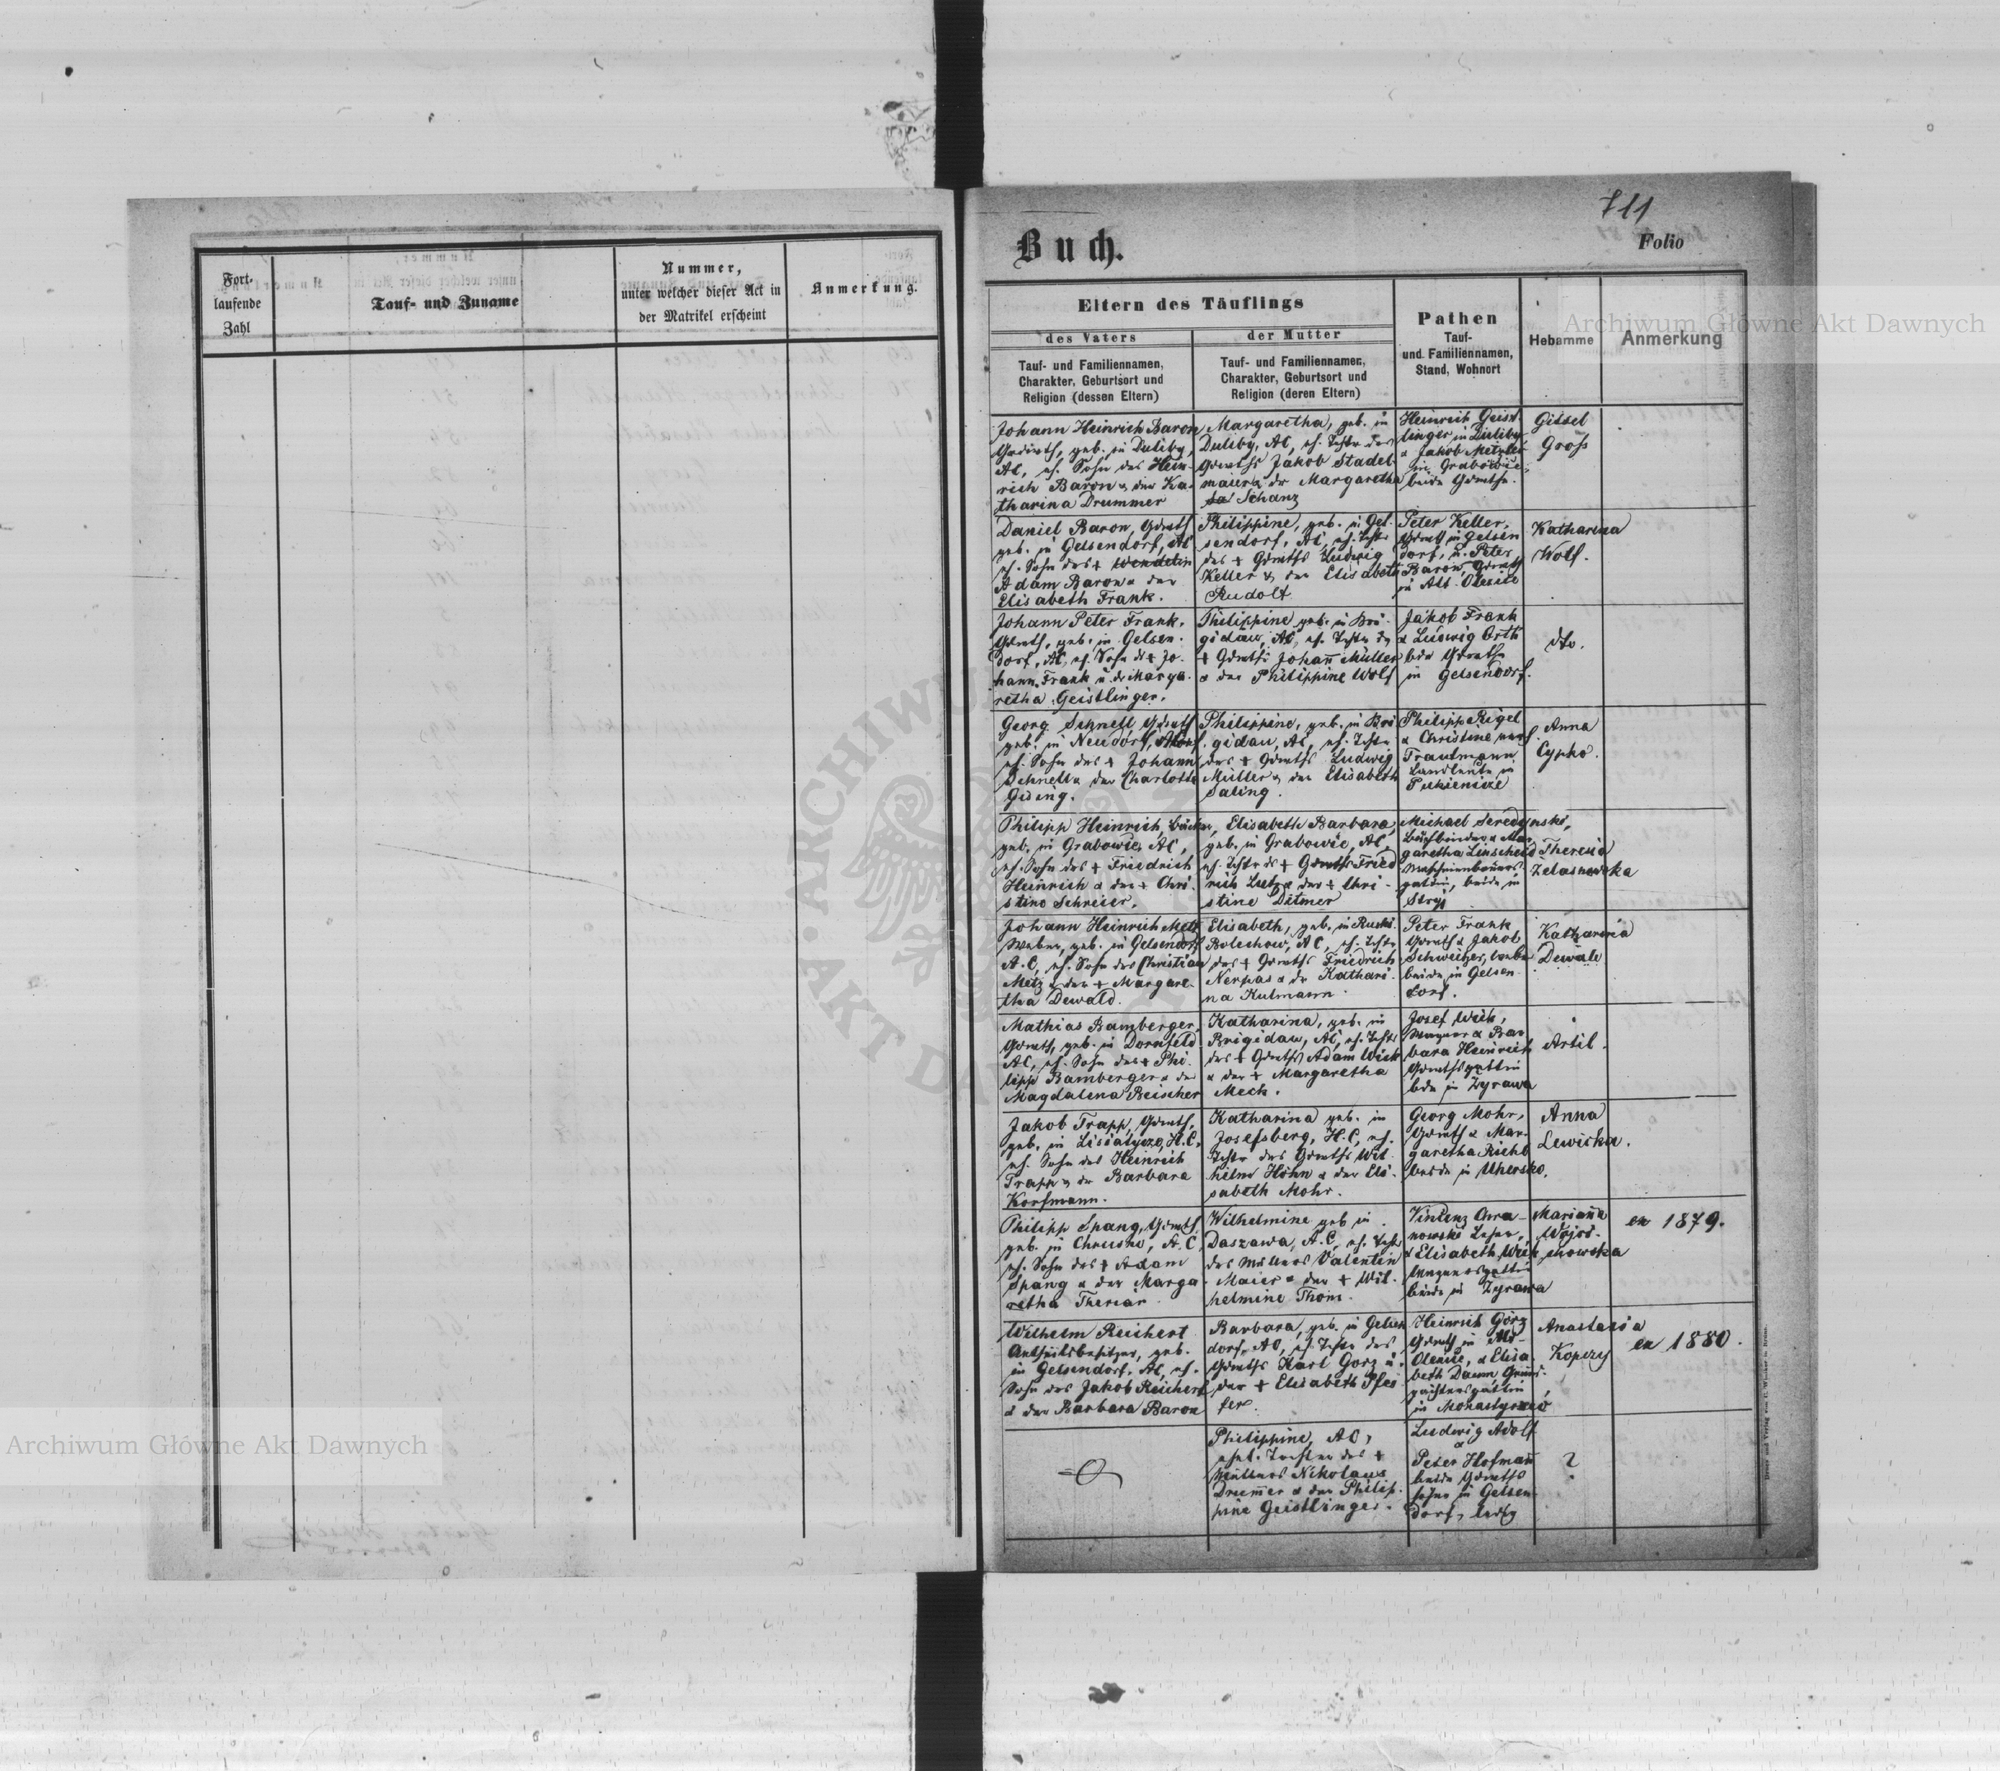 Fort-
laufende
Zahl
Tauf- und Zuname
Nummer,
unter welcher dieser Act in
der Matrikel erscheint
Anmerkung.
711
Buch.
Folio
Eltern des Täuflings
des Vaters
der Mutter
Tauf- und Familiennamen,
Charakter, Geburtsort und
Religion (dessen Eltern)
Tauf- und Familiennamen,
Charakter, Geburtsort und
Religion (deren Eltern)
Pathen
Tauf-
und Familiennamen,
Stand, Wohnort
Hebamme
Anmerkung
Johann Heinrich Baron
Grdwth, geb. in Duliby,
AC, eh. Sohn des Hein-
rich Baron u. der Ka-
tharina Drummer
Margaretha, geb. in
Duliby, AC, eh. Tchtr des
Grdwths Jakob Stadel-
maier u. dr Margaretha
Schanz
Heinrich Geist-
linger in Duliby
& Jakob Metzler
in Grabowiec,
beide Grdwthe.
Gittel
Groß
Daniel Baron, Grdwth
geb. in Gelsendorf, AC
eh. Sohn des + Wendelin
Adam Baron & der
Elisabeth Frank.
Philippine, geb. in Gel-
sendorf, AC, eh. Tchtr
des + Grdwths Ludwig
Keller & der Elisabeth
Rudolf
Peter Keller,
Grdwth in Gelsen
dorf, u. Peter
Baron, Grdwth
in Alt-Oleksice
Katharina
Wolf.
Johann Peter Frank,
Grdwth, geb. in Gelsen-
dorf, AC, eh. Sohn ds + Jo-
hann Frank u. dr Marga-
retha Geistlinger.
Philippine geb. in Bri-
gidau, AC, eh. Tchtr ds
+ Grdwths Johann Müller
& der Philippine Wolf
Jakob Frank
& Ludwig Orth
bde Grdwthe
in Gelsendorf.
dto.
Georg Schnell Grdwth
geb. in Neudorf,
eh. Sohn des + Johann
Schnell & der Charlotte
Gising.
Philippine, geb. in Bri-
gidau, AC, eh. Tchtr
des + Grdwths Ludwig
Müller & der Elisabeth
Saling.
Philipp Rigel
& Christine
Trautmann
Landleute in
Pukienice
Anna
Cypko.
Philipp Heinrich, Bäcker,
geb. in Grabowiec, AC,
eh. Sohn des + Friedrich
Heinrich & der + Chri-
stine Schreier.
Elisabeth Barbara,
geb. in Grabowiec, AC,
eh. Tchtr ds + Grdwths Fried
rich Lutz & der + Chri-
stine Ditmer
Michael Seredynski,
Buchbinder & Mar-
garetha Linscheid
Maschinenbauers-
gattin, beide in
Stryj
Theresia
Zelasnowska
Johann Heinrich Metz
Weber, geb. in Gelsendorf
A.C, eh. Sohn des Christian
Metz & der + Margare-
tha Dewald.
Elisabeth, geb. in
Bolechow, AC, eh. Tchtr
des + Grdwths Friedrich
Nerpas & dr Kathari-
na Kulmann.
Peter Frank
Grdwth & Jakob
Schweitzer, Weber
beide in Gelsen-
dorf.
Katharina
Dewald
Mathias Bamberger,
Grdwth, geb. in Dornfeld
AC, eh. Sohn des + Phi-
lipp Bamberger & der
Magdalena Reischer
Katharina, geb. in
Brigidau, AC, eh. Tchtr
des + Grdwths Adam Wick
& der + Margaretha
Mech.
Josef Wick,
Wagner & Bar
bara Heinrich
Grdwthsgattin
bde in Zyrawa
Artil.
Jakob Trapp, Grdwth,
geb. in Lissiatycze, H.C,
eh. Sohn des Heinrich
Trapp & dr Barbara
Korfmann.
Katharina geb. in
Josefsberg, H.C, eh.
Tchtr des Grdwths Wil-
helm Höhn & der Eli-
sabeth Mohr.
Georg Mohr,
Grdwth & Mar-
garetha Richl
beide in Uhersko.
Anna
Lewicka.
Philipp Spang, Grdwth
geb. in Chrusno, A.C,
eh. Sohn des + Adam
Spang & der Marga-
retha Theriär.
Wilhelmine geb in
Daszawa, A.C, eh. Tchtr
des Müllers Valentin
Maier & der + Wil-
helmine Thom.
Vinzenz Chra-
nowski
& Elisabeth Wick
Wagnersgattin
beide in Zyrawa
Marianna
Wojci-
chowska
ex 1879.
Wilhelm Reichert
Antheilsbesitzer, geb.
in Gelsendorf, AC, eh.
Sohn des Jakob Reichert
& der Barbara Baron
Barbara, geb. in Gelsen
dorf, AC, eh. Tchtr des
Grdwths Karl Görz u.
der + Elisabeth Pfei
fer.
Heinrich Görz
Grdwth in Alt-
Olexice, & Elisa-
beth Daum, Grund-
pächtersgattin
in Monastyrzec
Anastasia
Kopczy
ex 1880.
Philippine, AC,
ehel. Tochter des +
Müllers Nikolaus
Drumer & der Philip-
pine Geistlinger.
Ludwig Adolf
&
Peter Hofmann
beide Grdwths
söhne in Gelsen-
dorf, ledig
?
Archiwum Główne Akt Dawnych
Archiwum Główne Akt Dawnych